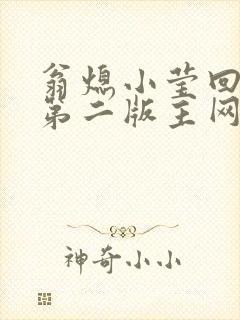 翁熄小莹回
第二版主网
神奇小小